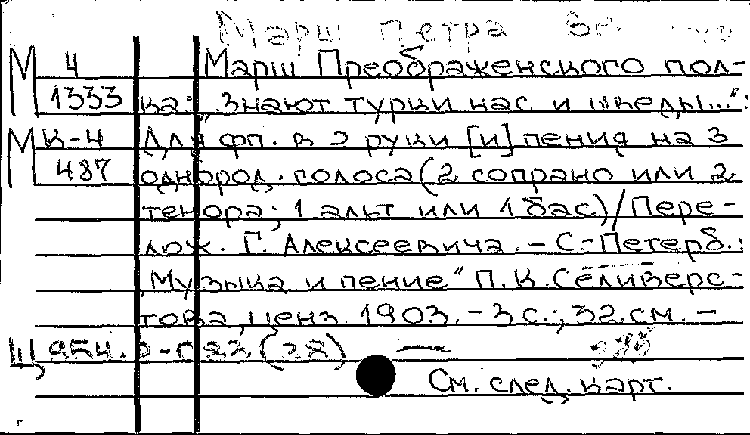 Марш Петра Ве
М 4 Марш Преображенского пол-
1333 ка: „Знают турки нас и шведы...":
М К-4 Для фп. в 2 руки [и] пения на 3
487 однород. голоса (2 сопрано или 2
тенора; 1 альт или 1 бас) / Пере-
лож. Г. Алексеевича. – С-Петерб.:
„Музыка и пение" П.К. Селиверс-
това, ценз. 1903. – 3 с.; 32 см. –
Ш 954.
См. след. карт.